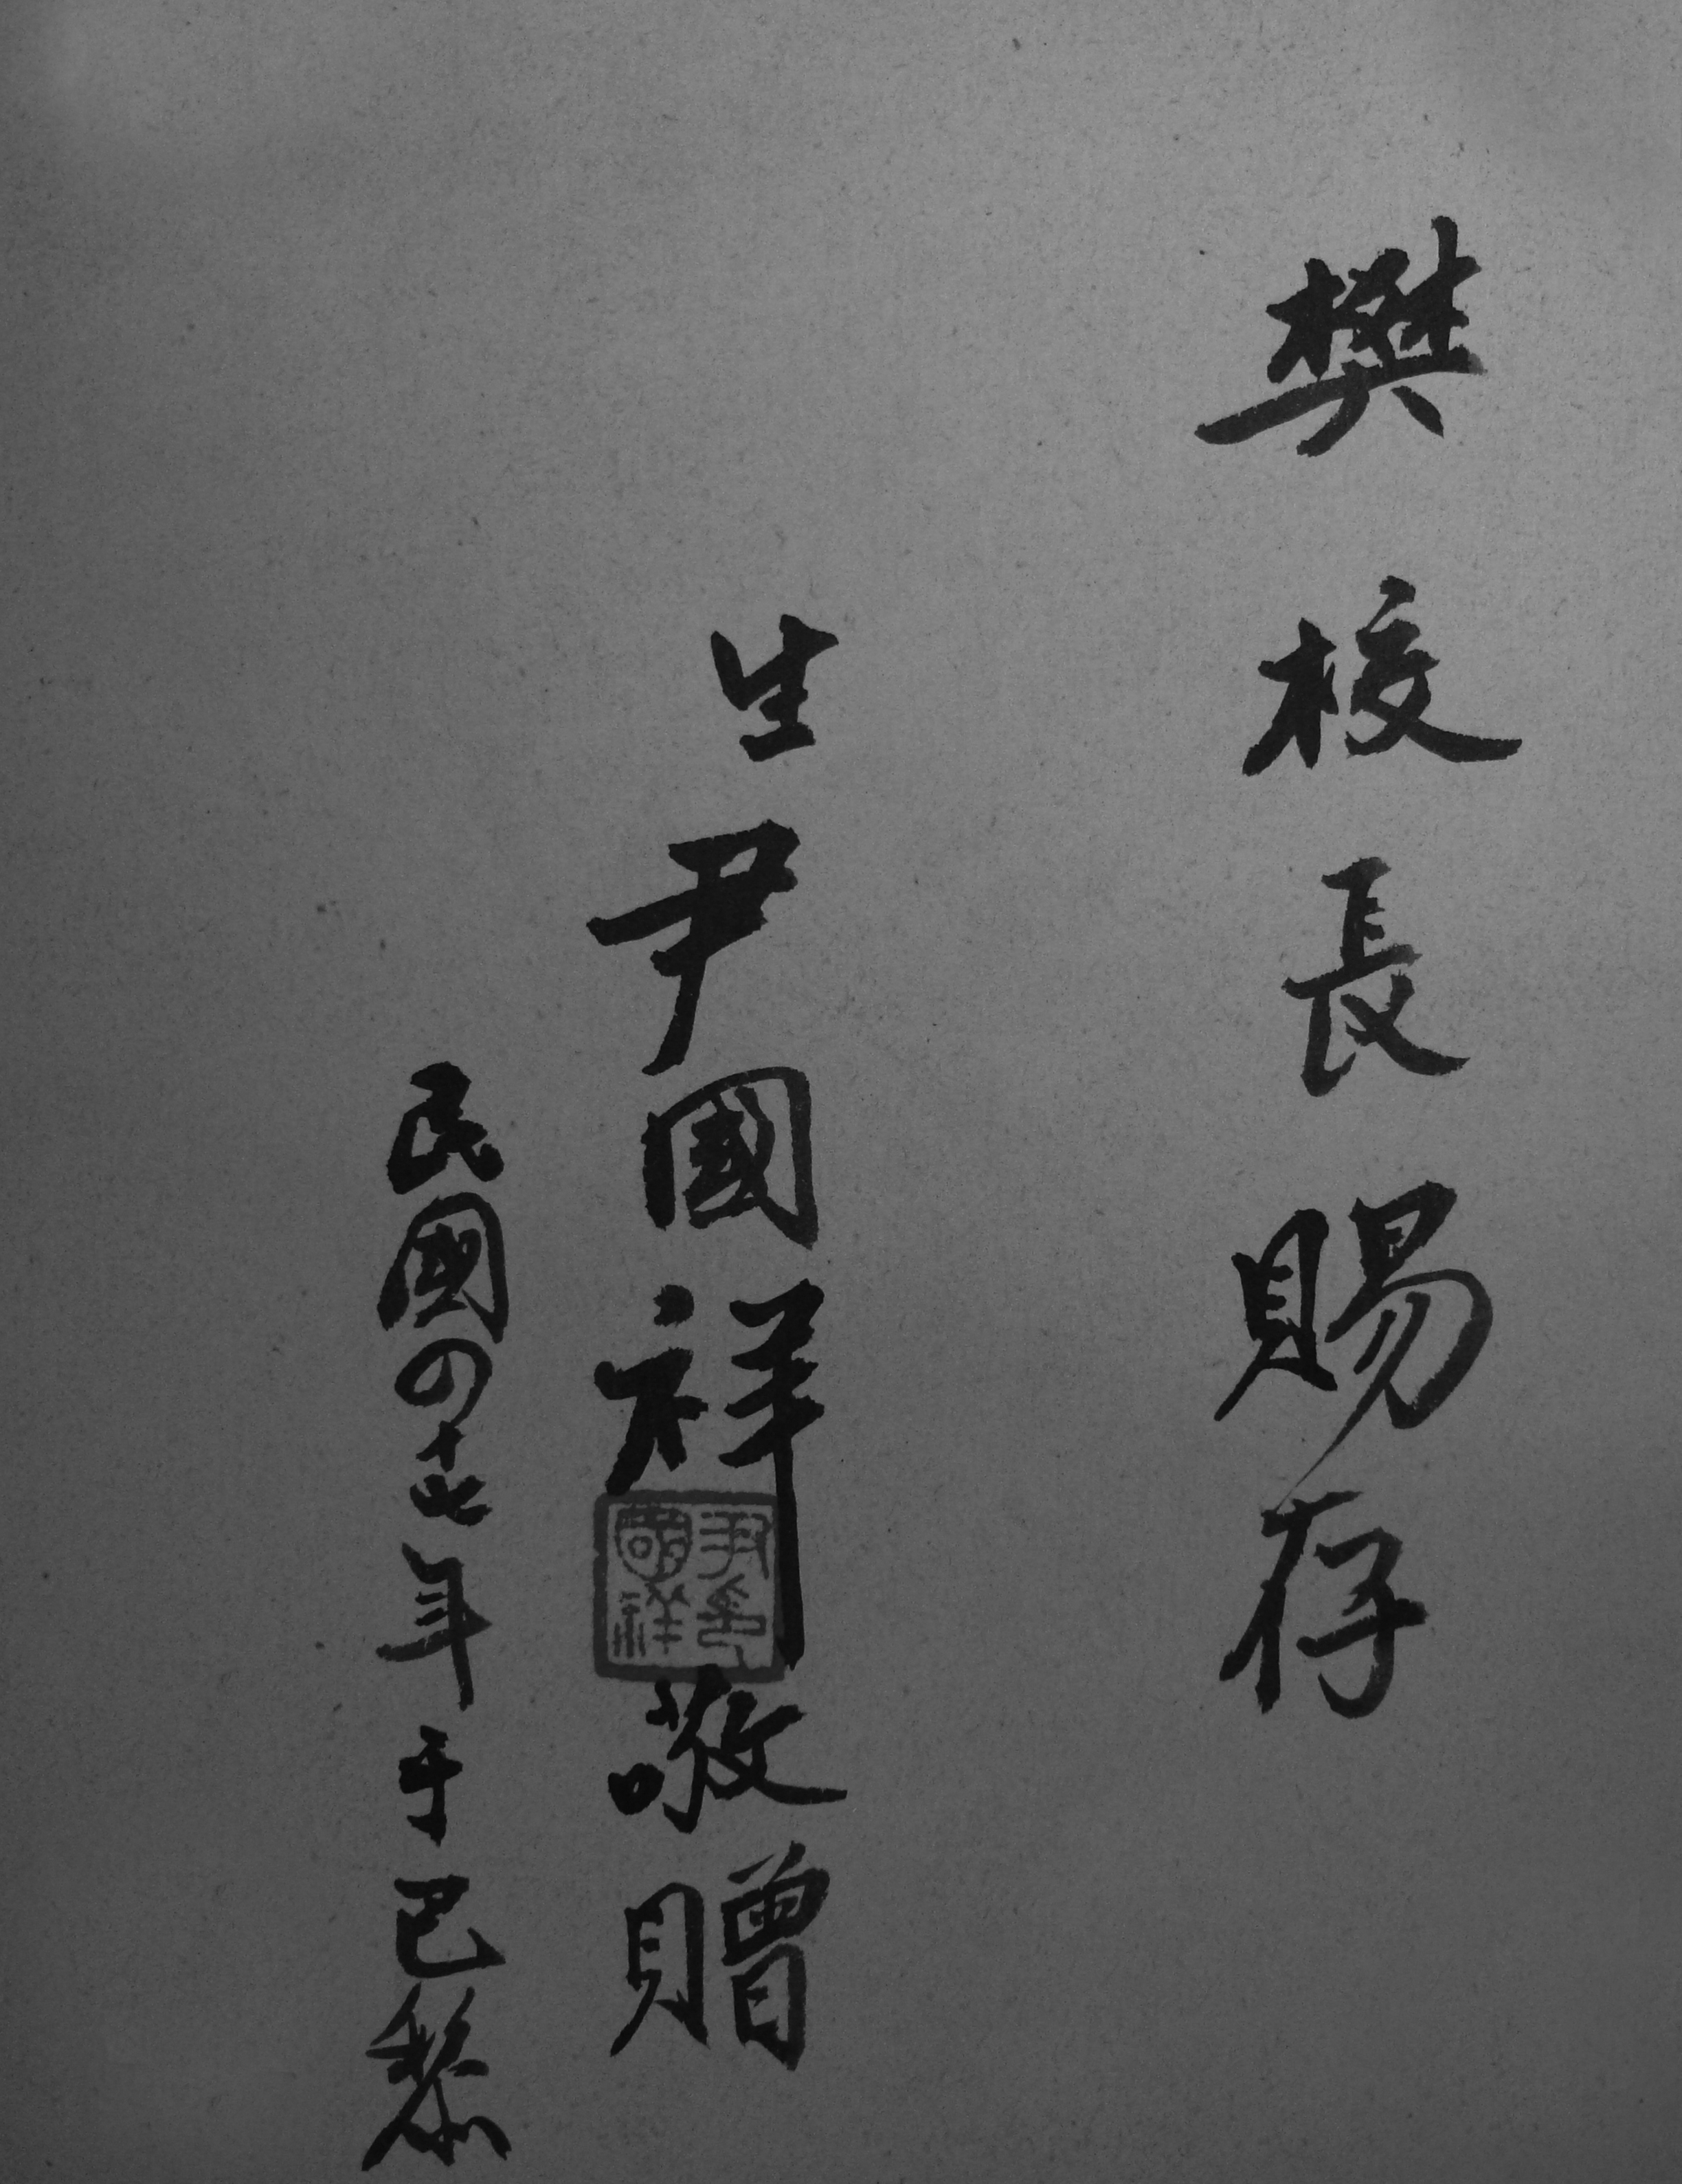 樊校長賜存
生尹國祥敬贈
民國四十七年于巴黎
尹印
國祥